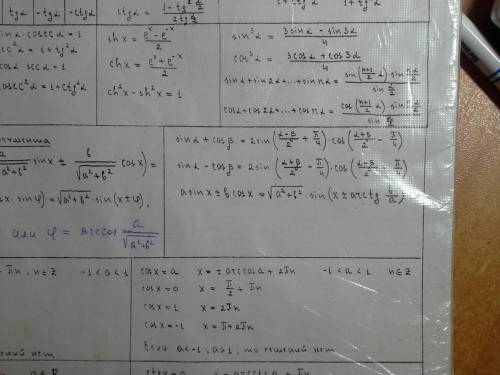 tgα | -tgα | -ctgα
ctgα = (1-tg² α/2)/(2tg α/2)
1+ctgα
1+tgα
sinα·cosecα = 1
sec²α = 1+tg²α
cosα secα = 1
cosec²α = 1+ctg²α
shx = (eˣ-e⁻ˣ)/2
chx = (eˣ+e⁻ˣ)/2
ch²x-sh²x = 1
sin³α = (3sinα-sin3α)/4
cos³α = (3cosα+cos3α)/4
sinα+sin2α+...+sinnα = (sin((n+1)/2 α)·sin nα/2)/(sin α/2)
cosα+cos2α+...+cosnα = (cos((n+1)/2 α)·sin nα/2)/(sin α/2)
a/√(a²+b²) sinx ± b/√(a²+b²) cosx) =
x·sinφ) = √(a²+b²)·sin(x±φ),
или φ = arccos a/√(a²+b²)
sinα+cosβ = 2sin((α-β)/2+π/4)·cos((α+β)/2-π/4)
sinα-cosβ = 2sin((α+β)/2-π/4)·cos((α-β)/2-π/4)
asinx±bcosx = √(a²+b²)·sin(x±arctg b/a)
πn, n∈Z -1<a<1
cosx=a x=±arccosa+2πn -1<a<1 n∈Z
cosx=0 x=π/2+πn
cosx=1 x=2πn
cosx=-1 x=π+2πn
Если a<-1; a>1, то решений нет
решений нет
a∈R
ctgx=a x=arcctga+πn